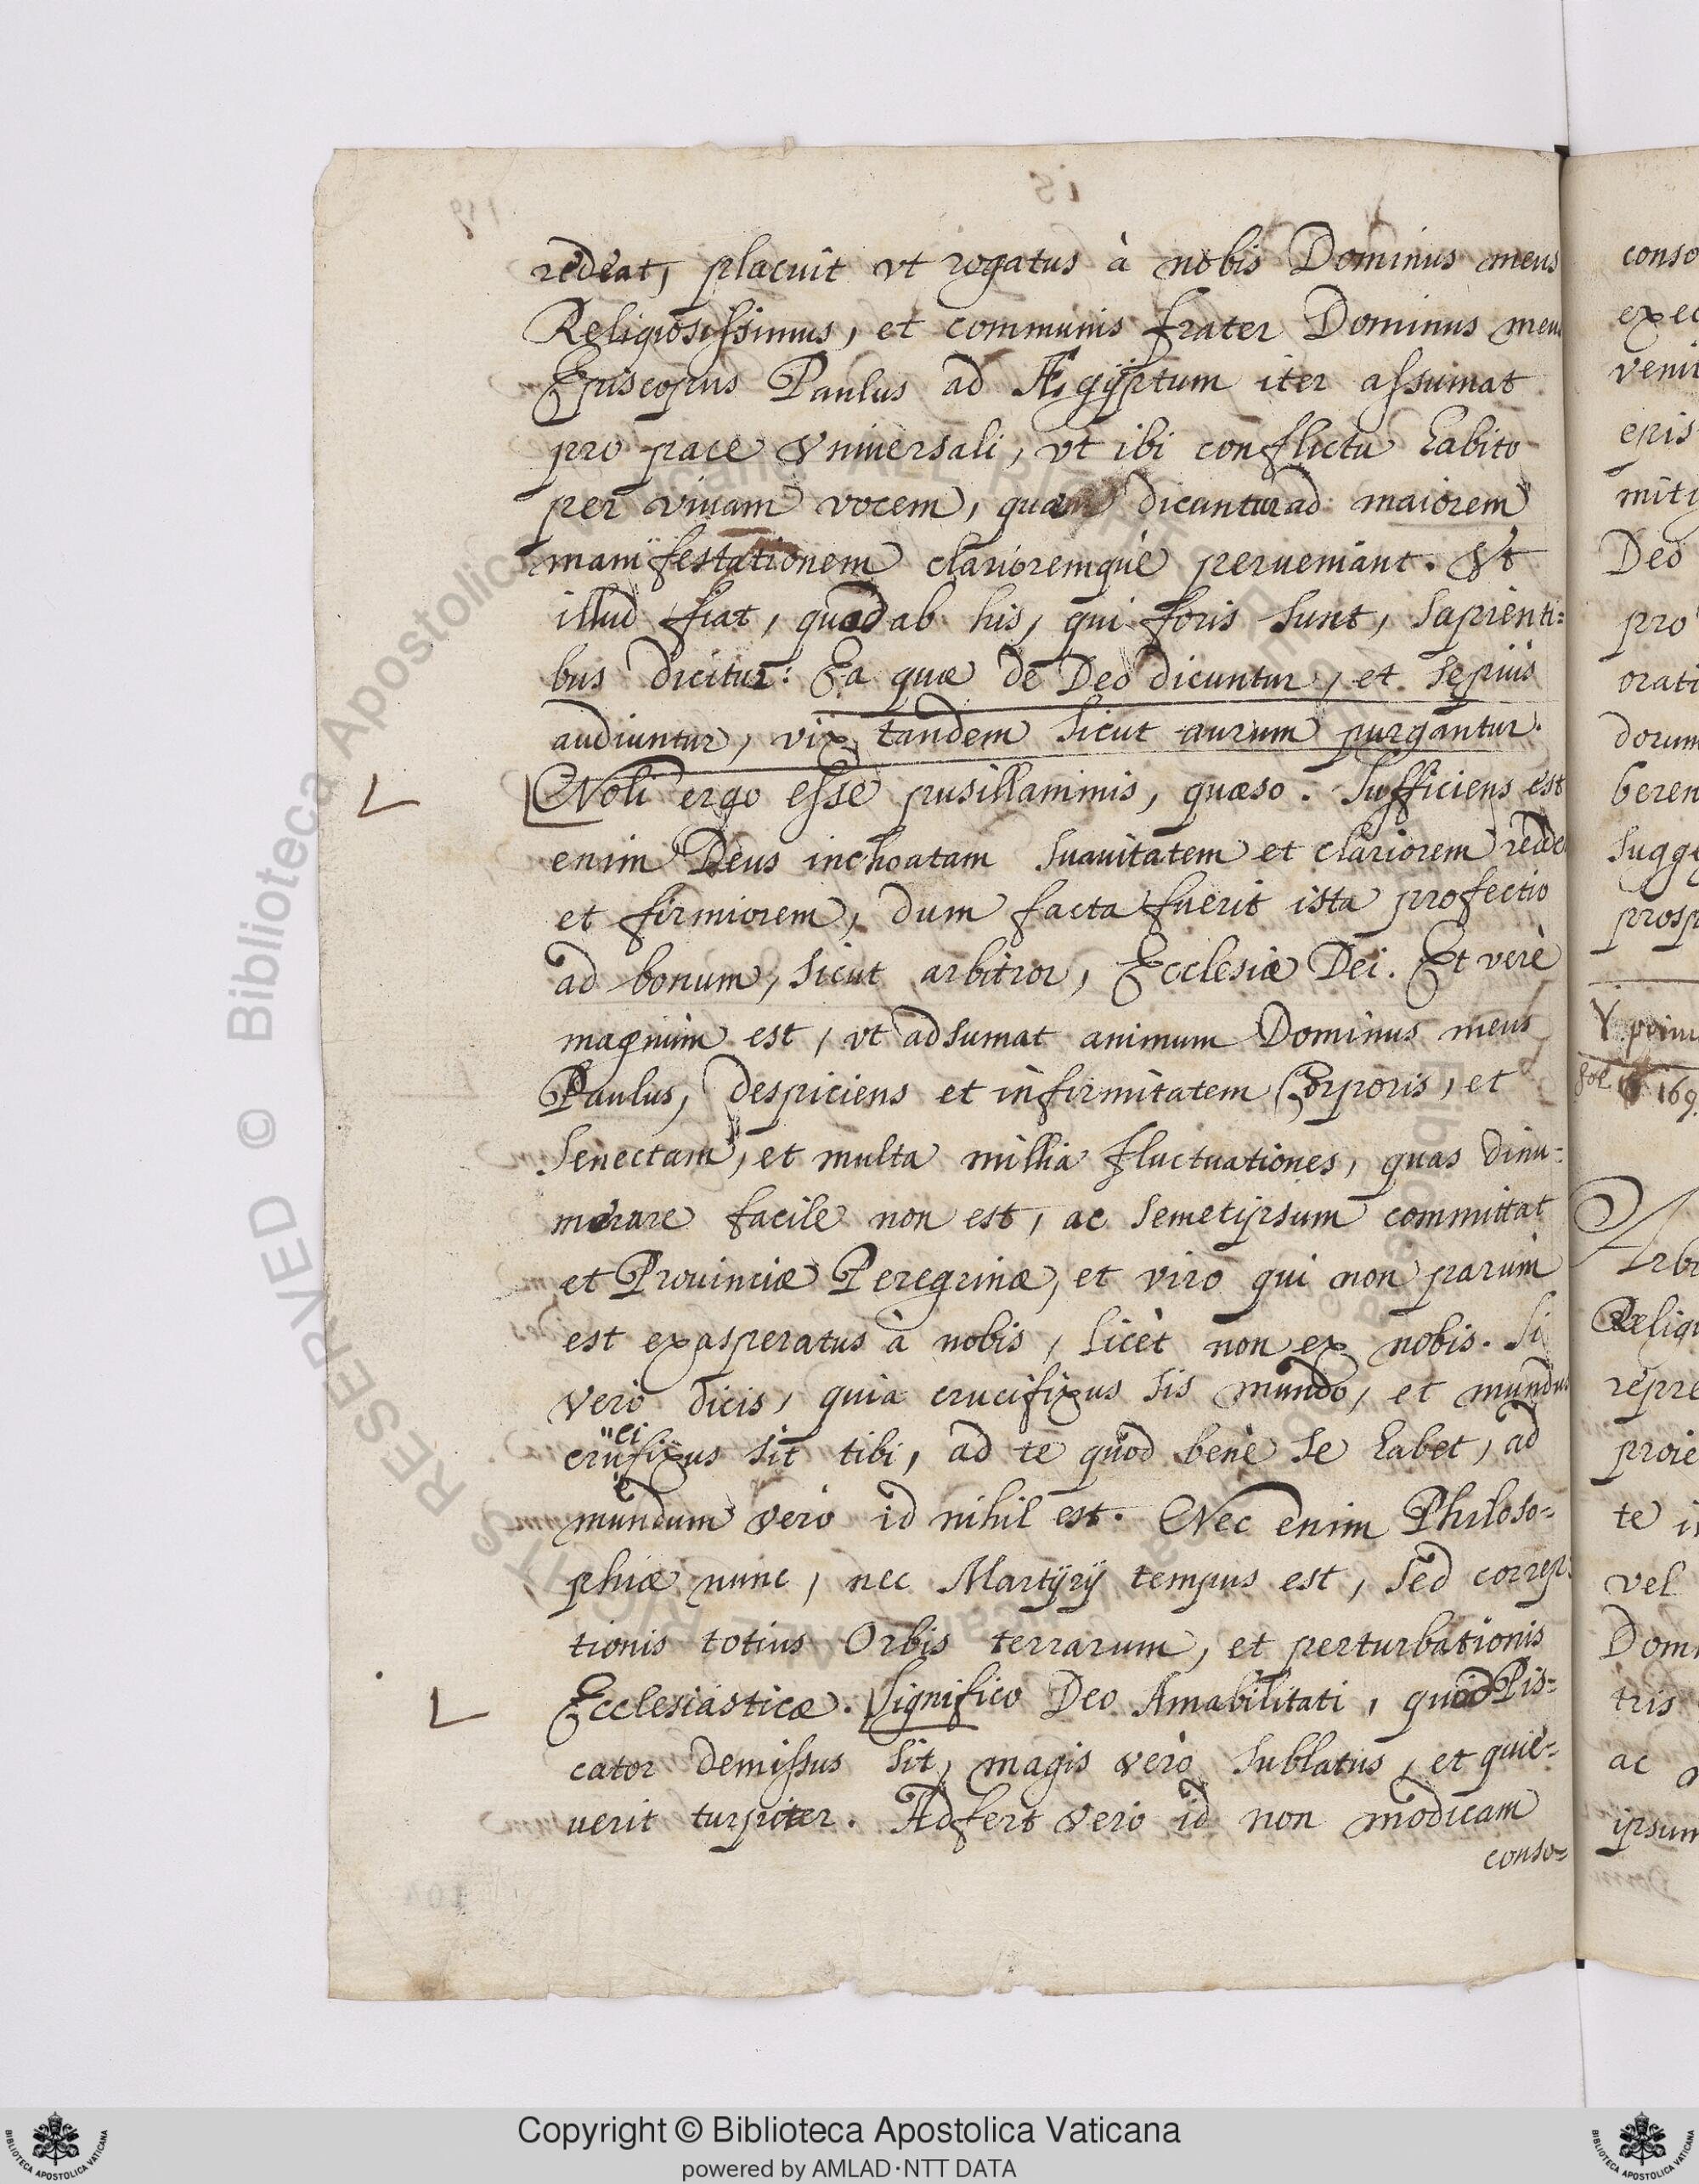 redeat, placuit vt rogatus à nobis Dominus meus
Religiosissimus, et communis frater Dominus meu
Episcopus Paulus ad Ægÿptum iter assumat
pro pace Vniuersali, vt ibi conflictu habito
per viuam vocem, quæ dicuntur ad maiorem
manifestationem clarioremque perueniant. Vt
illud fiat, quod ab his, qui foris sunt, sapienti=
bus dicitur: Ea quæ de Deo dicuntur, et sepius
audiuntur, vix tandem sicut aurum purgantur.
Noli ergo esse pusillanimis, quæso. Sufficiens est
enim Deus inchoatam suauitatem et clariorem redde
et firmiorem, dum facta fuerit ista profectio
ad bonum, sicut arbitror, Ecclesiæ Dei. Et verè
magnum est, vt adsumat animum Dominus meus
Paulus, despiciens et infirmitatem Corporis, et
Senectam, et multa millia fluctuationes, quas dinu=
merare facile non est, ac semetipsum committat
et Prouinciæ Peregrinæ, et viro qui non parum
est exasperatus à nobis, licèt non ex nobis. Si
verò dicis, quia crucifixus sis mundo, et mundus
crucifixus sit tibi, ad te quod benè se habet, ad
mundum verò id nihil est. Nec enim Philoso=
phiæ nunc, nec Martÿrÿ tempus est, sed correp=
tionis totius Orbis terrarum, et perturbationis
Ecclesiasticæ. Significo Deo Amabilitati, quod Pis=
cator demissus sit, magis verò sublatus, et quie=
uerit turpiter. Adfert verò id non modicam
conso=
conso
exec
veni
epis
miti
Deo
pro
orati
dorum
beren
sugge
prosp
fol. 169.
Arbi
Religi
repre
proie
te i
vel
Domi
tris
ac
ipsum
Copyright © Biblioteca Apostolica Vaticana
powered by AMLAD·NTT DATA